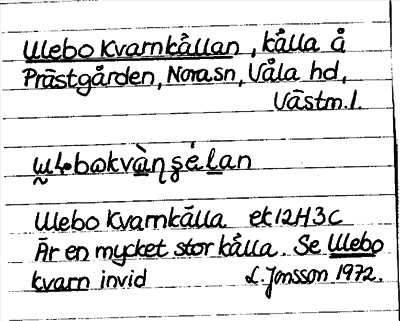 Ulebo Kvarnkällan, källa å
Prästgården, Nora sn, Våla hd,
Västm. l.
Ulebo Kvarnkälla ek 12H3C
Är en mycket stor källa. Se Ulebo
kvarn invid L. Jonsson 1972.